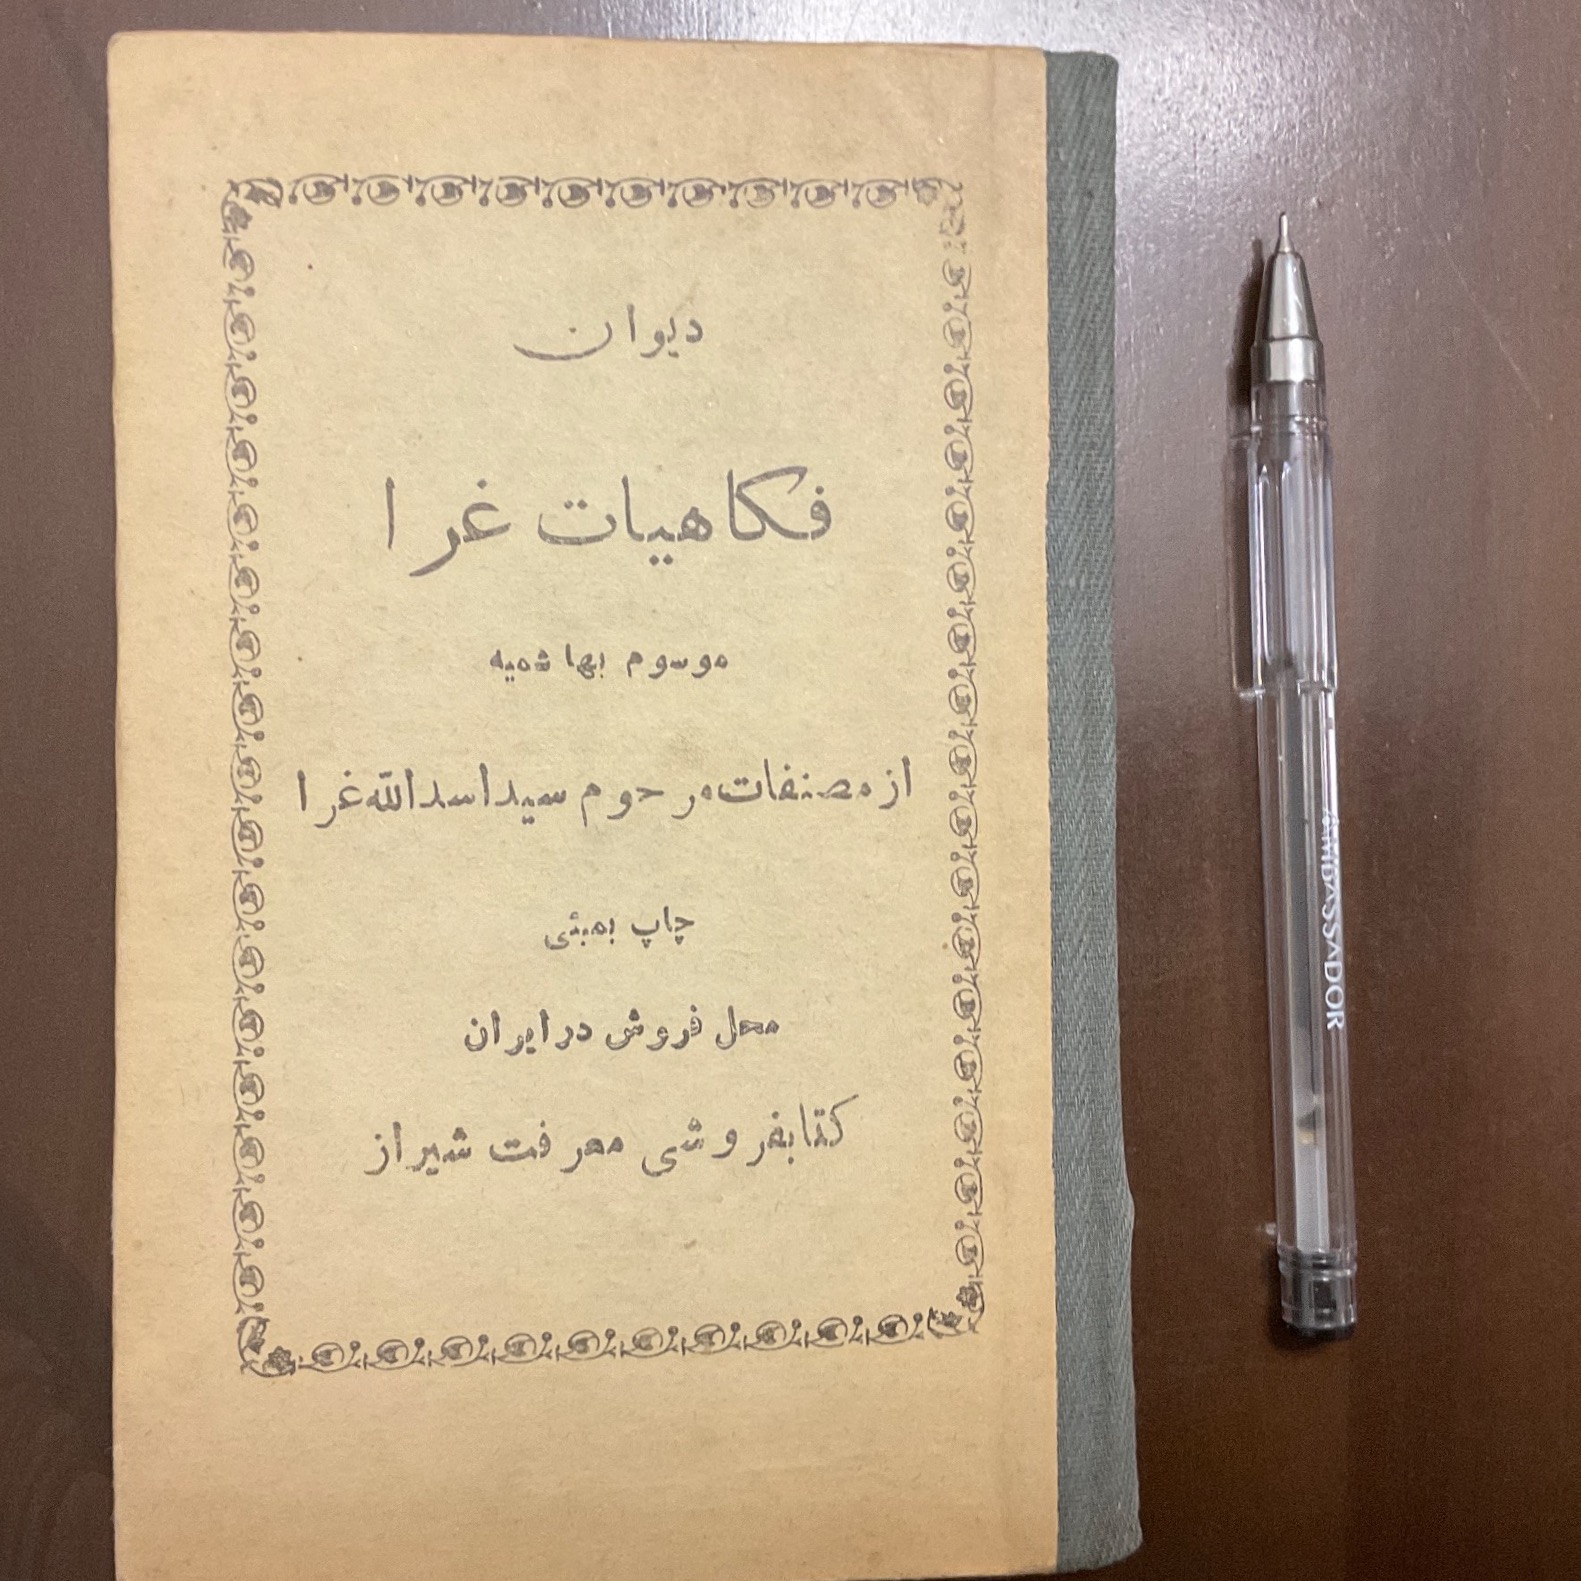 دیوان
فکاهیات غرا
موسوم بهاشمیه
از مصنفات مرحوم سید اسدالله غرا
چاپ بمبئی
محل فروش در ایران
کتابفروشی معرفت شیراز
AMBASSADOR